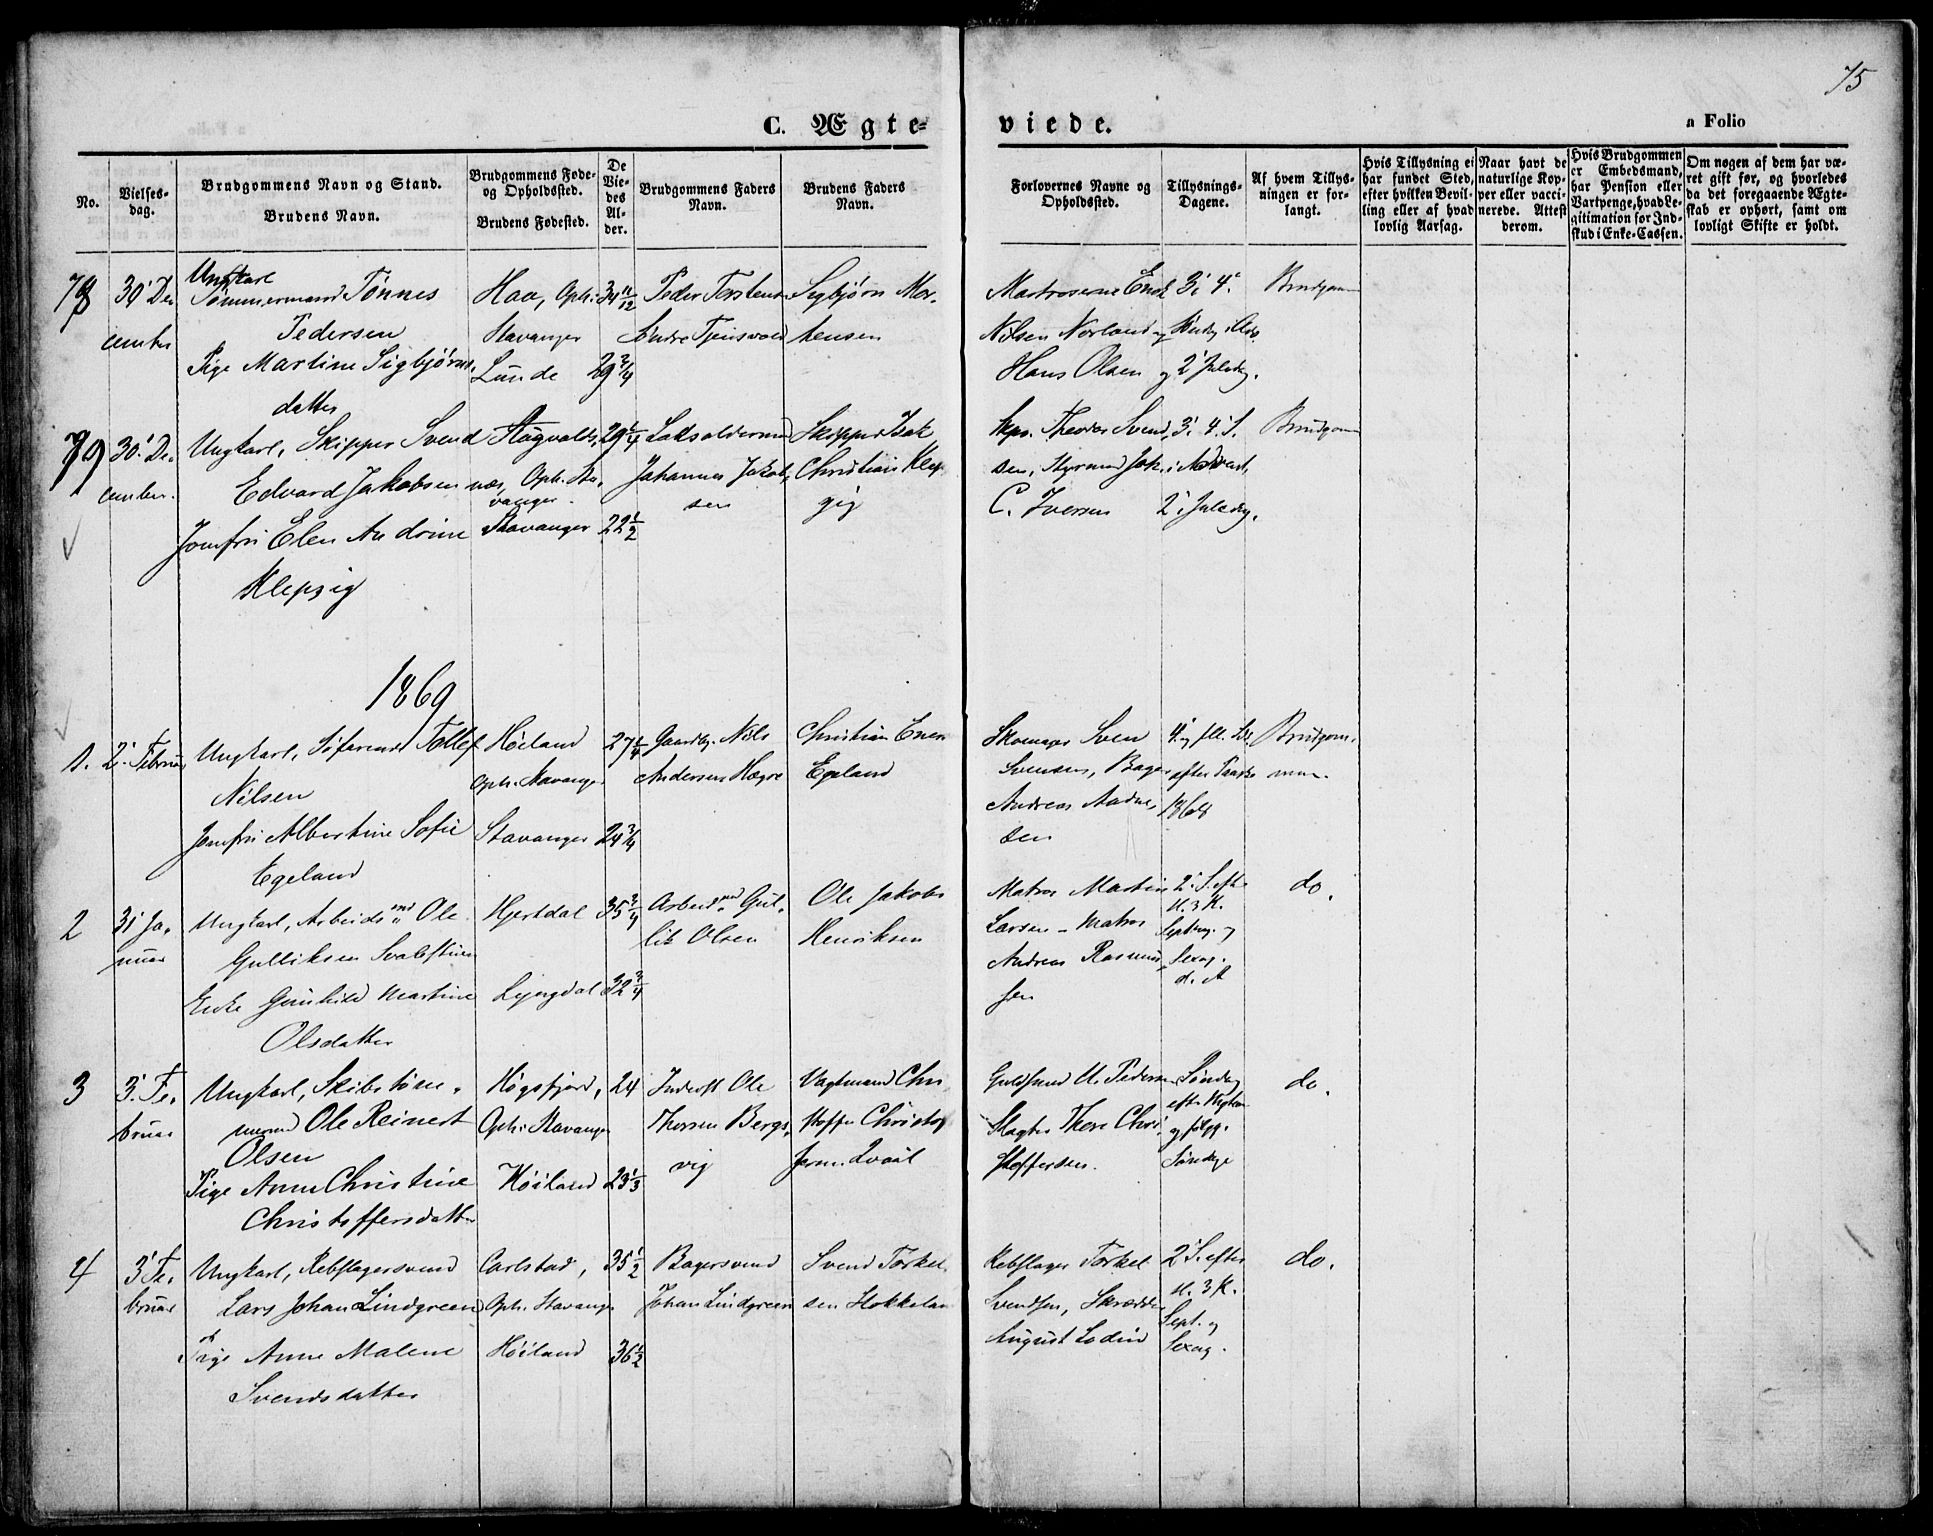 75
C. Ægte-
viede.
a Folio
No.
Vielses-
dag.
Brudgommens Navn og Stand.
Brudens Navn.
Brudgommens Føde-
og Opholdssted.
Brudens Fødested.
De
Vie-
des
Al-
der.
Brudgommens Faders
Navn.
Brudens Faders
Navn.
Forlovernes Navne og
Opholdssted.
Tillysnings-
Dagene.
Af hvem Tillys-
ningen er for-
langt.
Hvis Tillysning ei
har fundet Sted,
efter hvilken Bevil-
ling eller af hvad
lovlig Aarsag.
Naar havt de
naturlige Kop-
per eller vacci-
nerede. Attest
derom.
Hvis Brudgommen
er Embedsmand,
har Pension eller
Vartpenge, hvad Le-
gitimation for Ind-
skud i Enke-Cassen.
Om nogen af dem har væ-
ret gift før, og hvorledes
da det foregaaende Ægte-
skab er ophørt, samt om
lovligt Skifte er holdt.
78
30' De-
cember
Ungkarl
Tømmermand Tønnes
Pedersen
Pige Martine Sigbjørns-
datter
Haa, Oph:
Stavanger
Lunde
34 11/12
29 3/4
Peder Torstens
Sigbjørn Mor-
tensen
Matroserne Enok
Nilsen Norland og
Hans Olsen
3' 4'
og 2' Juledag.
Brudgom
79
30' De-
cember.
Ungkarl, Skipper Svend
Edvard Jakobsen
Jomfru Elen Andrine
Klepzig
Haugvalds-
næs, Oph. Sta-
vanger.
Stavanger
29 1/4
22 1/2
Lodsoldermand
Johannes Jakob-
sen
Skipper Isak
Christian Klep-
zig
Skpr. Theodor Svend-
sen, Styrmand Joh.
C. Iversen
3' 4' S.
i Advent,
2' Juledag.
Brudgom
1869
1.
2' Februar
Ungkarl, Søfarende Tollef
Nilsen
Jomfru Albertine Sofie
Egeland
Høiland
Oph: Stavanger
Stavanger
27 1/4
24 3/4
Gaardbr. Nils
Andersen Hegre
Christian Enersen
Egeland
Skomager Sven
Svensen, Bager
Andreas Aadne-
sen
efter Paaske
1868
Brudgom-
men.
2
31' Ja-
nuar
Ungkarl, Arbeidsmd Ole
Gulliksen Svalestuen
Enke Gunhild Martine
Olsdatter
Hjertdal
Lyngdal
35 3/4
32 3/4
Arbeidsmd Gul-
lik Olsen
Ole Jakob
Henriksen
Matros Martin
Larsen - Matros
Andreas Rasmus-
sen
2' S. eft.
H. 3 K.
Septuag. og
Sexag.
d. A
do.
3
3' Fe-
bruar
Ungkarl, Skibstøm-
mermand Ole Reinert
Olsen
Pige Anne Christine
Christoffersdatter
Høgsfjord,
Oph: Stavanger
Høiland
24
23 1/3
Inderst Ole
Thorsen Bergs-
vig
Vagtmand Chri-
stoffer Christof-
fersen
Guldsmed U. Pedersen
Slagter Thore Chri-
stoffersen.
Søndag
og følgg.
Søndage
do.
4
3' Fe-
bruar
Ungkarl, Rebslagersvend
Lars Johan Lindgreen
Pige Anne Malene
Svendsdatter
Carlstad,
Oph: Stavanger
Høiland
35 1/2
36 1/2
Bagersvend
Johan Lindgreen
Svend Torkel-
sen Hokkeland
Rebslager Torkel
Svendsen, Skrædder
August Lodin
2' S. efter
H. 3 K.
Sept. og
Sexag.
do.